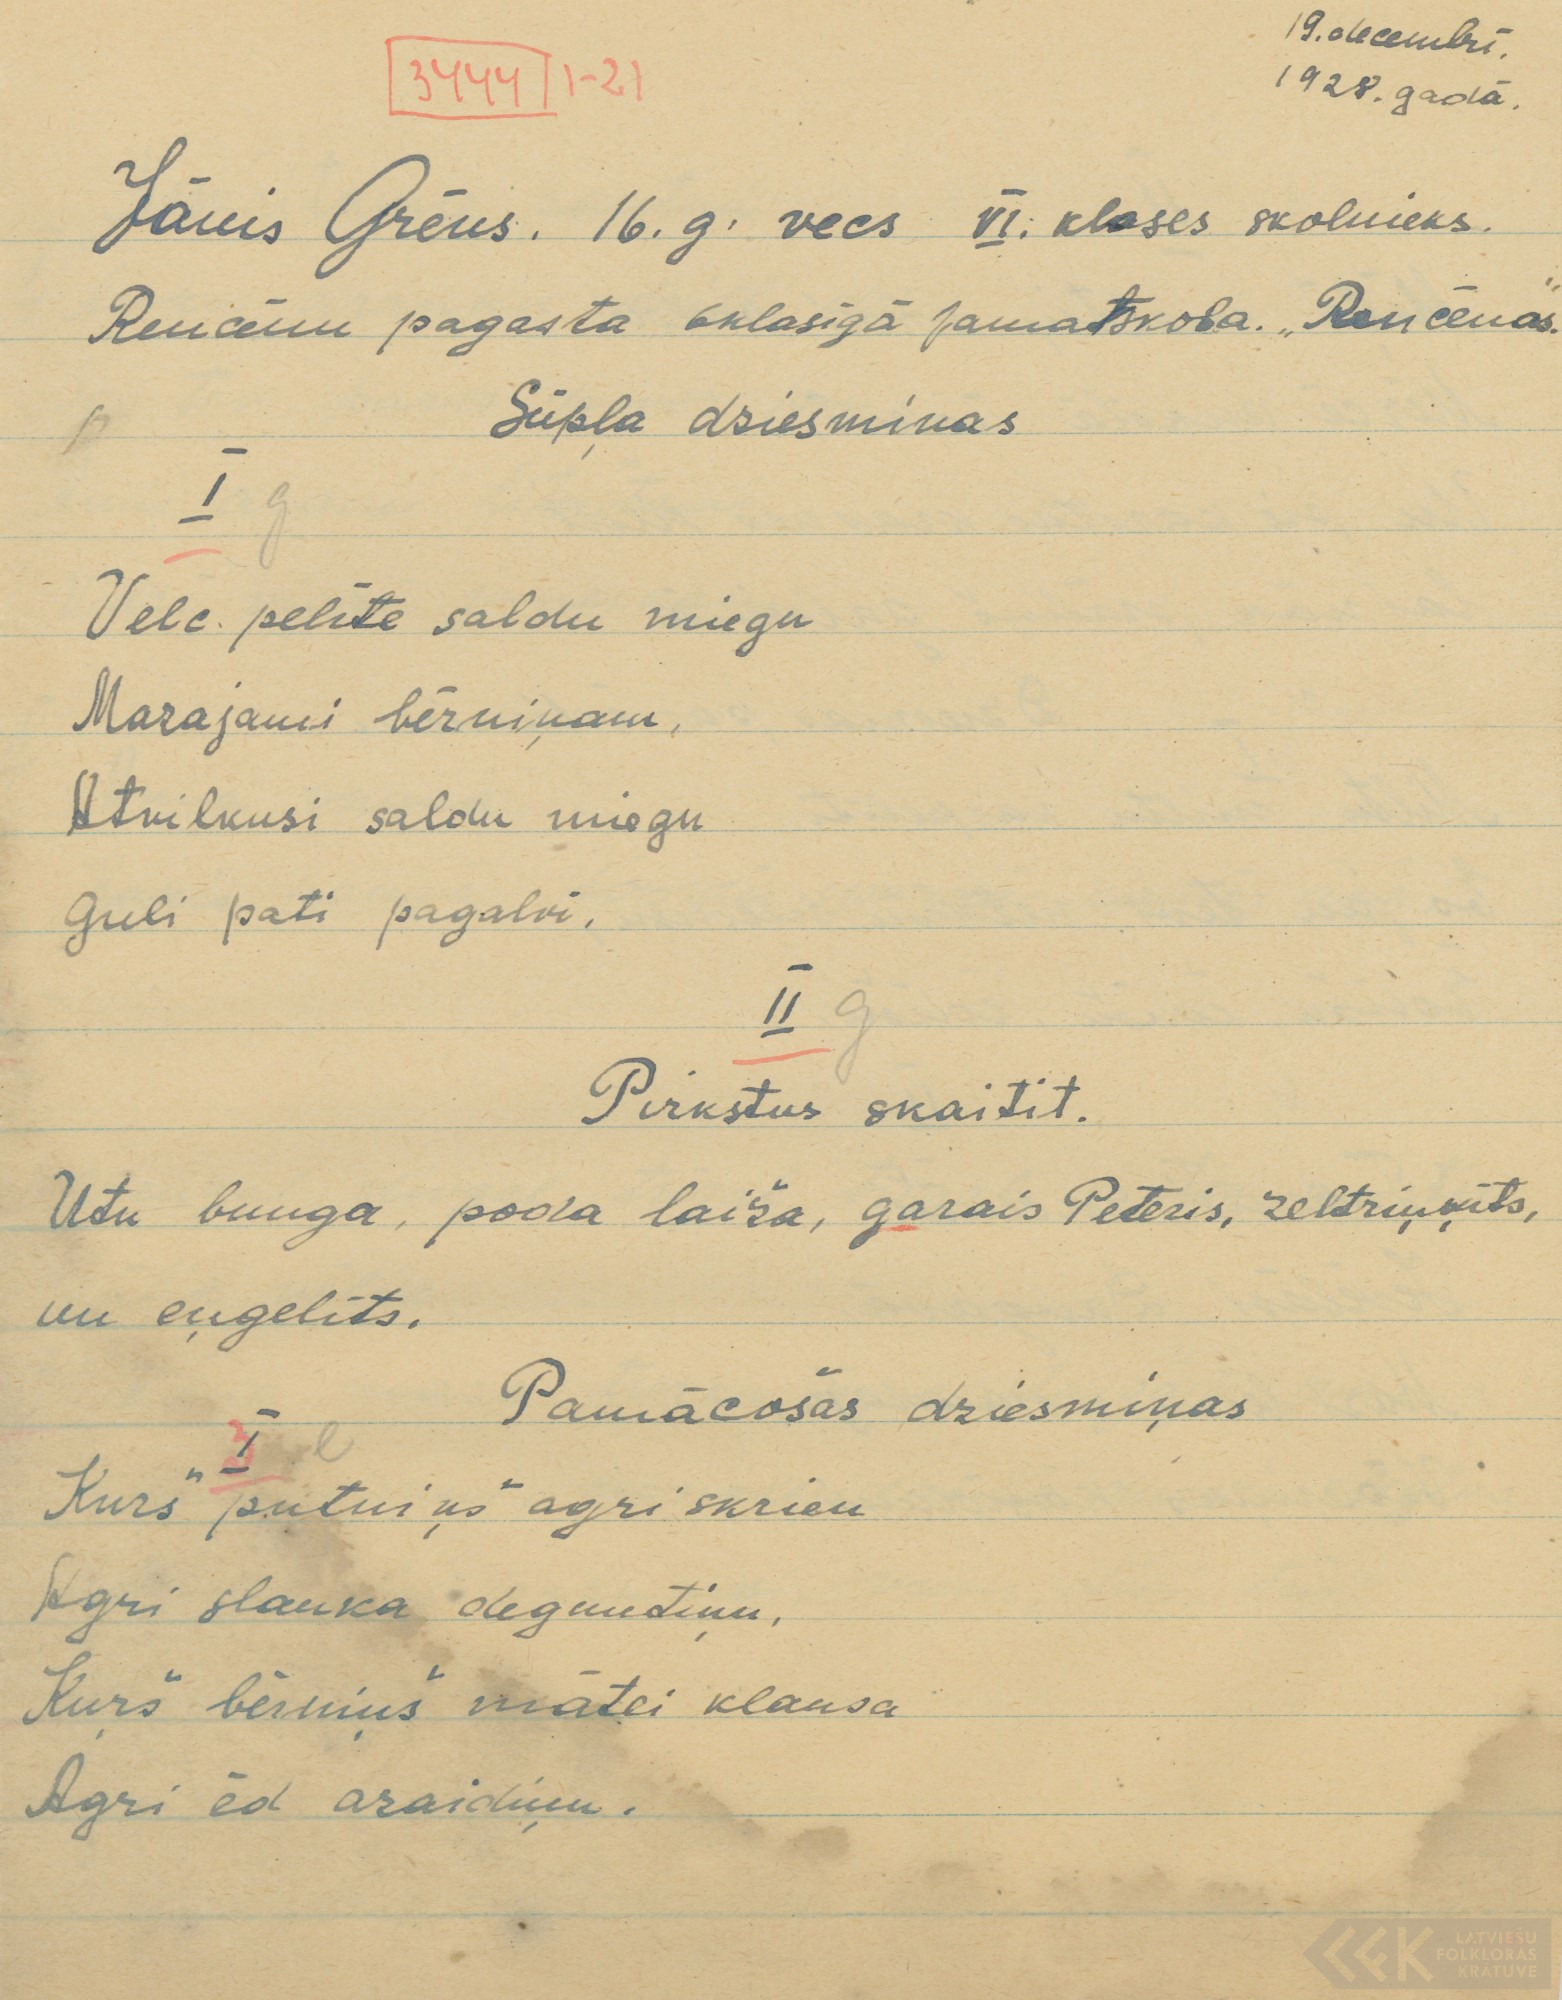 19. decembrī.
3444 1-21
1928. gadā.
Jānis Grēns. 16. g. vecs VI. klases skolnieks.
Rencēnu pagasta 6klasīgā pamatskola. „Rencēnās."
p
Šūpļa dziesmiņas
I g
Velc pelīte saldu miegu
Mazajami bērniņam,
Atvilkusi saldu miegu
Guli pati pagalvī.
II g
Pirkstus skaitit.
Utu bunga, poda laiža, garais Pēteris, zeltriņķīts,
un eņgelīts.
Pamācošās dziesmiņas
3 I e
Kurš putniņš agri skrien
Agri slauka deguntiņu,
Kuŗš bērniņš mātei klausa
Agri ēd azaidiņu.
LATVIEŠU
FOLKLORAS
KRĀTUVE